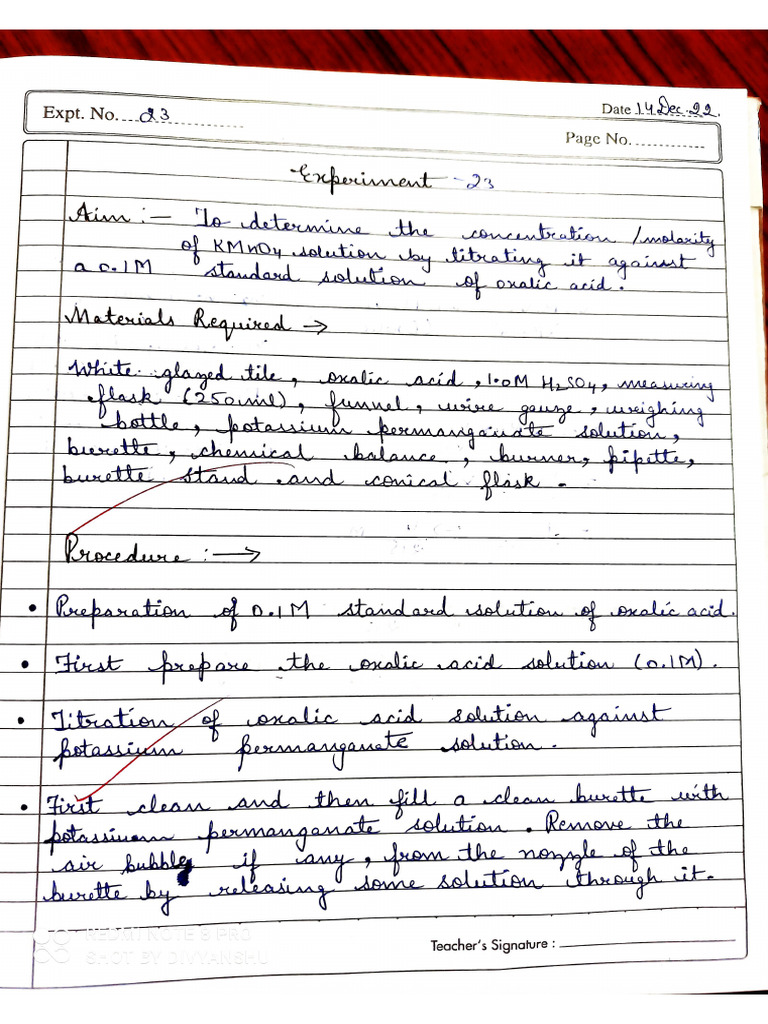 Expt. No. 23
Date 14 Dec. 22.
Page No.
Experiment - 23
Aim :- To determine the concentration /molarity
of KMnO4 solution by titrating it against
a 0.1M standard solution of oxalic acid.
Materials Required →
White glazed tile, oxalic acid, 1.0M H2SO4, measuring
flask (250 ml), funnel, wire gauze, weighing
bottle, potassium permanganate solution,
burette, chemical balance, burner, pipette,
burette stand and conical flask.
Procedure :→
• Preparation of 0.1M standard solution of oxalic acid.
• First prepare the oxalic acid solution (0.1M).
• Titration of oxalic acid solution against
potassium permanganate solution.
• First clean and then fill a clean burette with
potassium permanganate solution. Remove the
air bubble if any, from the nozzle of the
burette by releasing some solution through it.
Teacher's Signature :
REDMI NOTE 8 PRO
SHOT BY DIVYANSHU